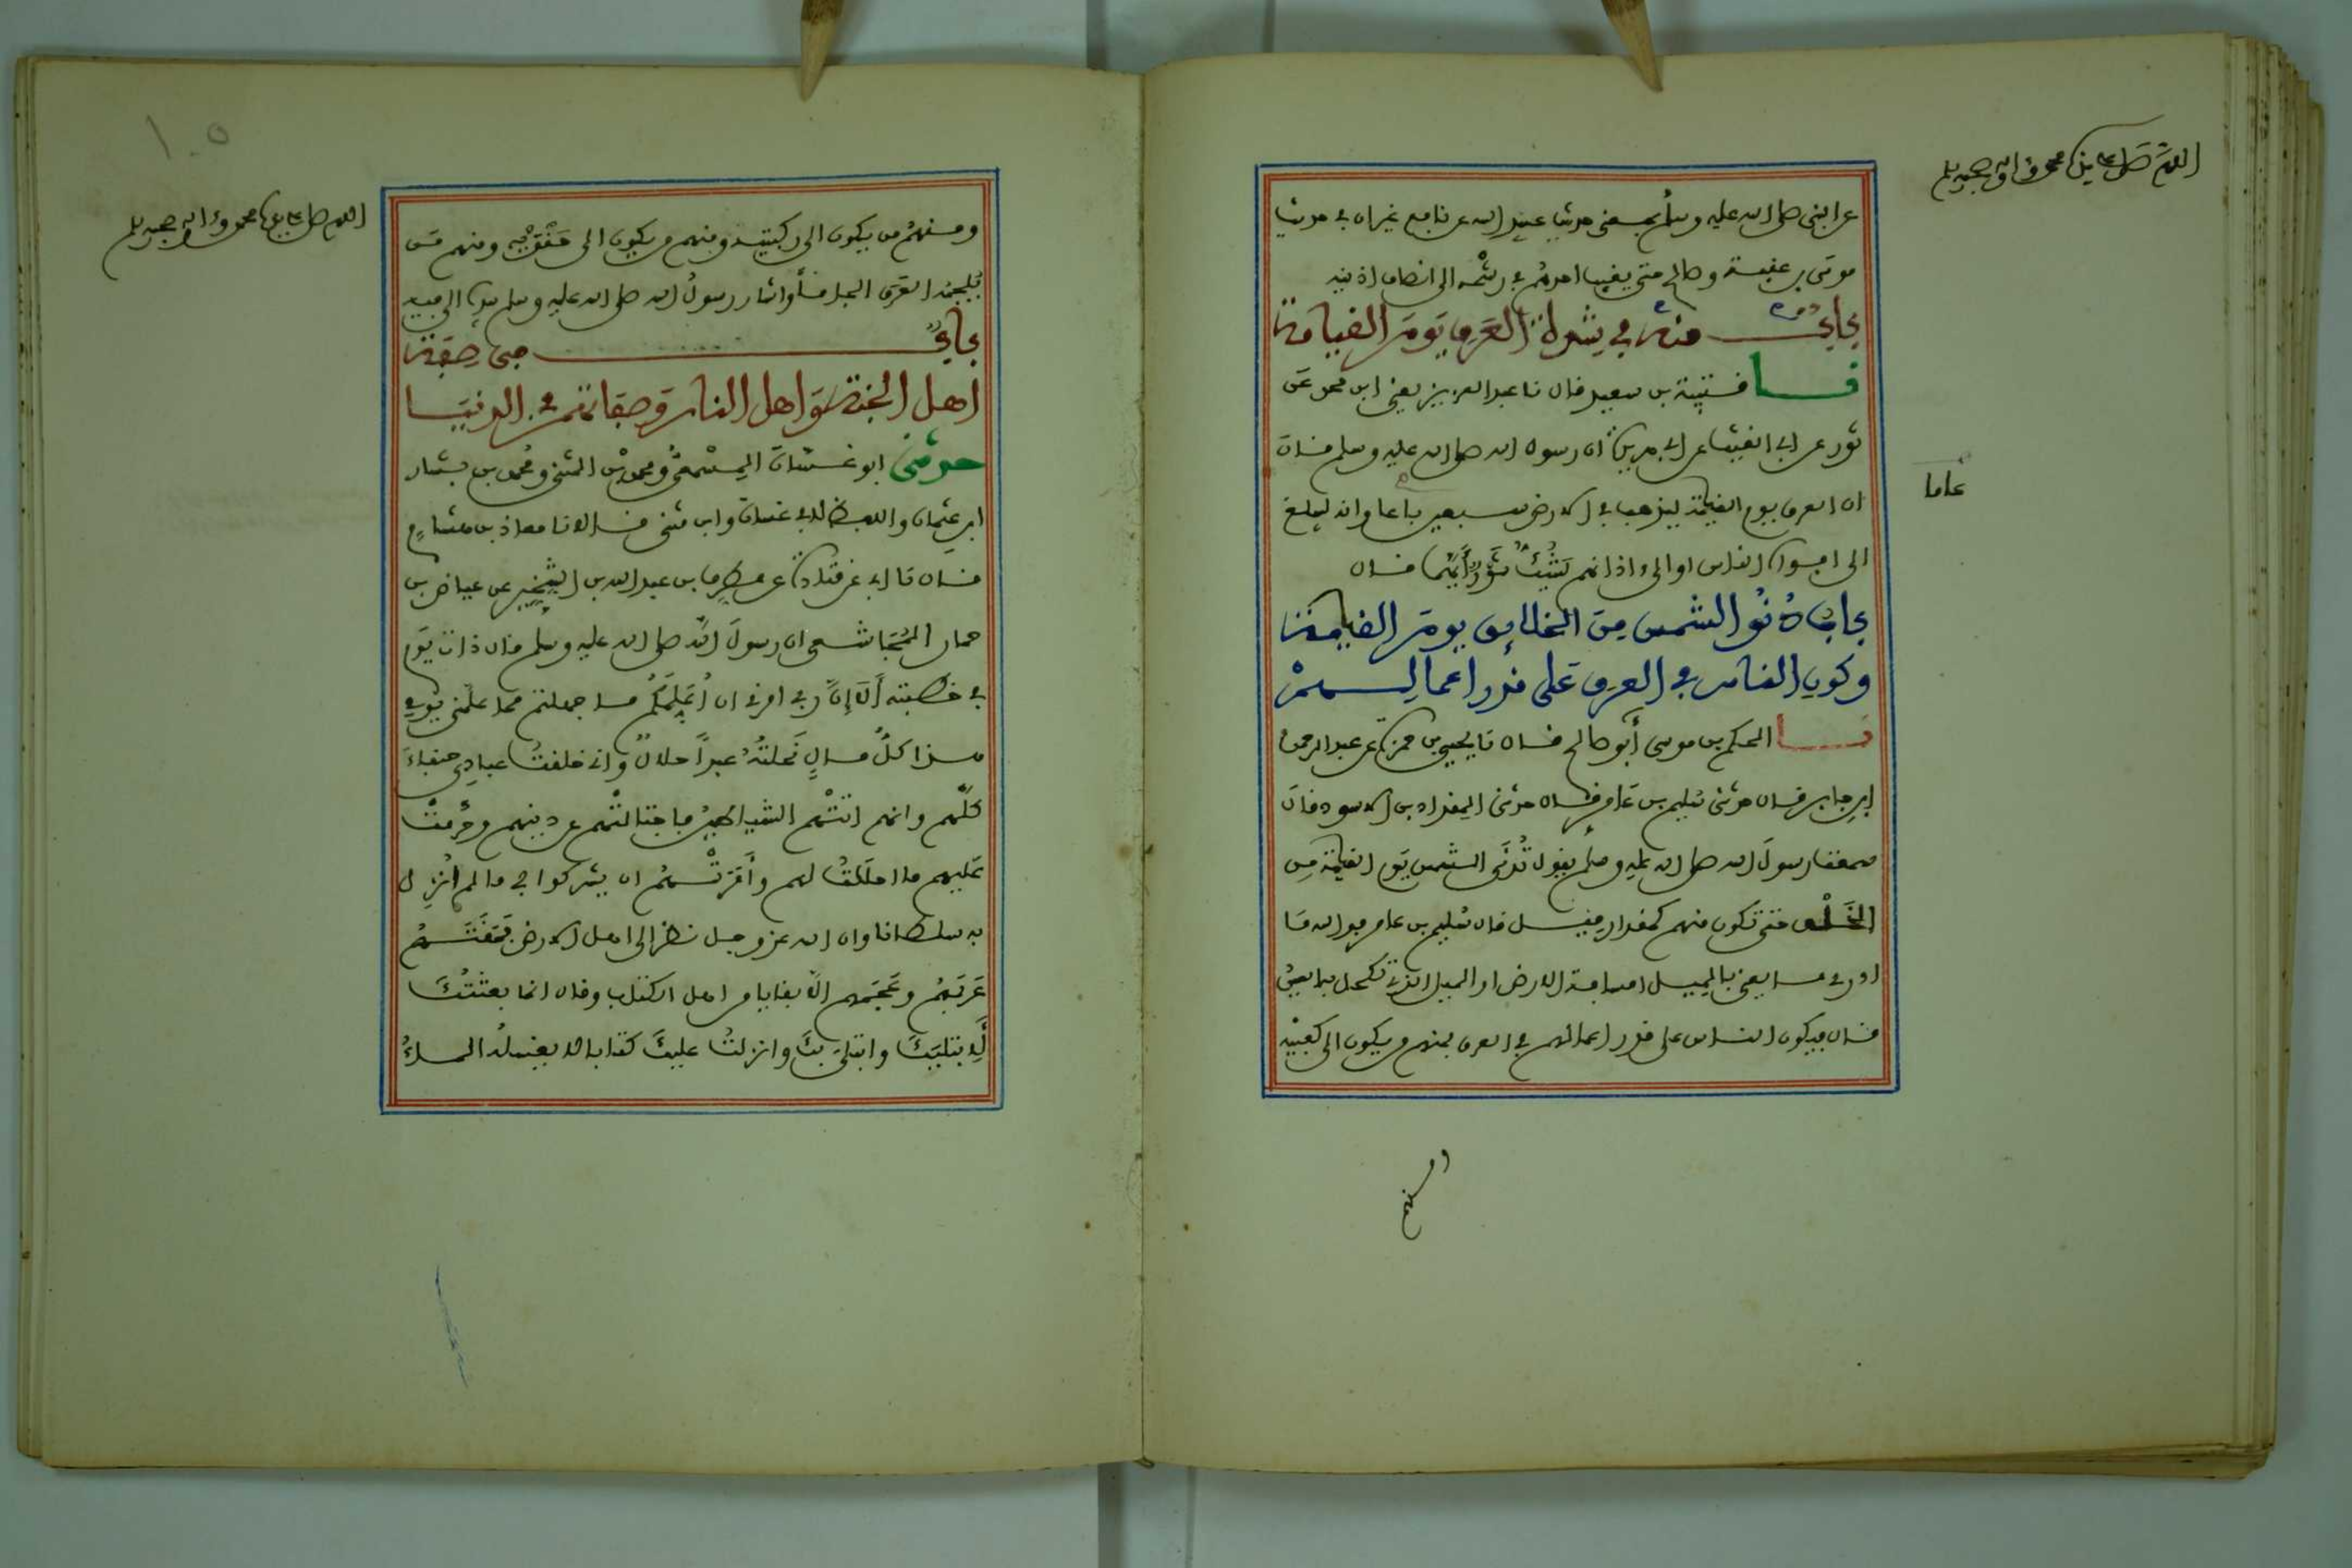 اللهم صل على سيدنا محمد وآله وصحبه وسلم
عن النبي صلى الله عليه وسلم بمعنى حديث عبيد الله عن نافع غير ان في حديث
موسى بن عقبة وصالح حتى يغيب احدهم في رشحه الى انصاف اذنيه
باب منه في شدة العرق يوم القيامة
نا قتيبة بن سعيد قال نا عبد العزيز يعني ابن محمد عن
ثور عن ابي الغيث عن ابي هريرة ان رسول الله صلى الله عليه وسلم قال
ان العرق يوم القيمة ليذهب في الارض سبعين باعا وانه ليبلغ
عاما
الى افواه الناس او الى اذانهم يشك ثور ايهما قال
باب دنو الشمس من الخلائق يوم القيمة
وكون الناس في العرق على قدر اعمالهم
نا الحكم بن موسى أبو صالح قال نا يحيى بن حمزة عن عبد الرحمن
ابن جابر قال حدثني سليم بن عامر قال حدثني المقداد بن الاسود قال
سمعت رسول الله صلى الله عليه وسلم يقول تدنى الشمس يوم القيمة من
الخلق حتى تكون منهم كمقدار ميل قال سليم بن عامر فوالله ما
ادري ما يعني بالميل امسافة الارض او الميل الذي تكحل به العين
قال فيكون الناس على قدر اعمالهم في العرق فمنهم من يكون الى كعبيه
ومنهم
اللهم صل على سيدنا محمد وآله وصحبه وسلم
١٠٥
ومنهم من يكون الى ركبتيه ومنهم من يكون الى حقويه ومنهم من
يلجمه العرق الجاما وأشار رسول الله صلى الله عليه وسلم بيده الى فيه
باب في صفة
اهل الجنة واهل النار وصفاتهم في الدنيا
حدثني ابو غسان المسمعي ومحمد بن المثنى ومحمد بن بشار
ابن عثمان واللفظ لابي غسان وابن مثنى قالا نا معاذ بن هشام
قال نا ابي عن قتادة عن مطرف بن عبد الله بن الشخير عن عياض بن
حمار المجاشعي ان رسول الله صلى الله عليه وسلم قال ذات يوم
في خطبته ألا إن ربي امرني ان أعلمكم ما جهلتم مما علمني يومي
هذا كل مال نحلته عبدا حلال واني خلقت عبادي حنفاء
كلهم وانهم اتتهم الشياطين فاجتالتهم عن دينهم وحرمت
عليهم ما احللت لهم وأمرتهم ان يشركوا بي ما لم انزل
به سلطانا وان الله عز وجل نظر الى اهل الارض فمقتهم
عربهم وعجمهم الا بقايا من اهل الكتاب وقال انما بعثتك
لابتليك وابتلي بك وانزلت عليك كتابا لا يغسله الماء